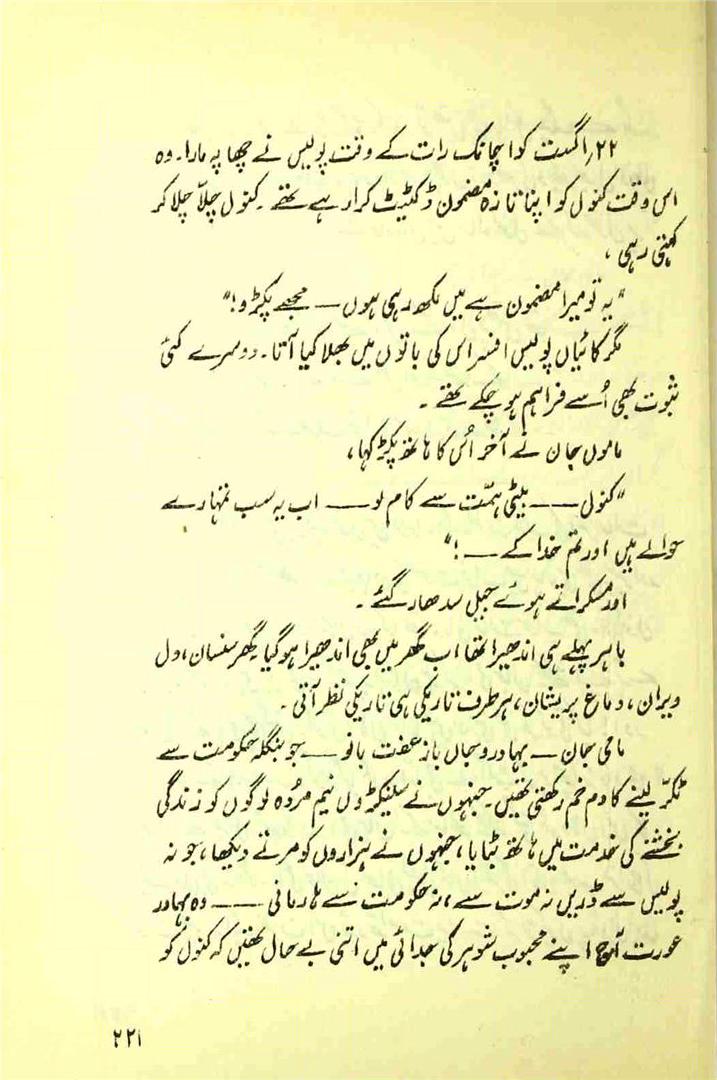 ۲۲؍اگست کو اچانک رات کے وقت پولیس نے چھاپہ مارا۔ وہ
اس وقت کنول کو اپنا تازہ مضمون ڈکٹیٹ کرا رہے تھے۔ کنول چلّا چلا کر
کہتی رہی،
"یہ تو میرا مضمون ہے میں لکھ رہی ہوں — مجھے پکڑو!"
مگر کائیاں پولیس افسر اس کی باتوں میں بھلا کیا آتا۔ دوسرے کئی
ثبوت بھی اُسے فراہم ہو چکے تھے۔
ماموں جان نے آخر اُس کا ہاتھ پکڑ کہا،
"کنول —— بیٹی ہمّت سے کام لو —— اب یہ سب تمہارے
حوالے ہیں اور تم خدا کے ——!"
اور مسکراتے ہوئے جیل سدھار گئے۔
باہر پہلے ہی اندھیرا تھا اب گھر میں بھی اندھیرا ہو گیا۔ گھر سنسان، دل
ویران، دماغ پریشان، ہر طرف تاریکی ہی تاریکی نظر آتی۔
مامی جان — بہادر و جاں باز عفت بانو — جو بنگلہ حکومت سے
ٹکّر لینے کا دم خم رکھتی تھیں۔ جنہوں نے سینکڑوں نیم مُردہ لوگوں کو زندگی
بخشنے کی خدمت میں ہاتھ بٹایا، جنہوں نے ہزاروں کو مرتے دیکھا، جو نہ
پولیس سے ڈریں نہ موت سے، نہ حکومت سے ہار مانی —— وہ بہادر
عورت آج اپنے محبوب شوہر کی جدائی میں اتنی بے حال تھیں کہ کنول کو
۲۲۱